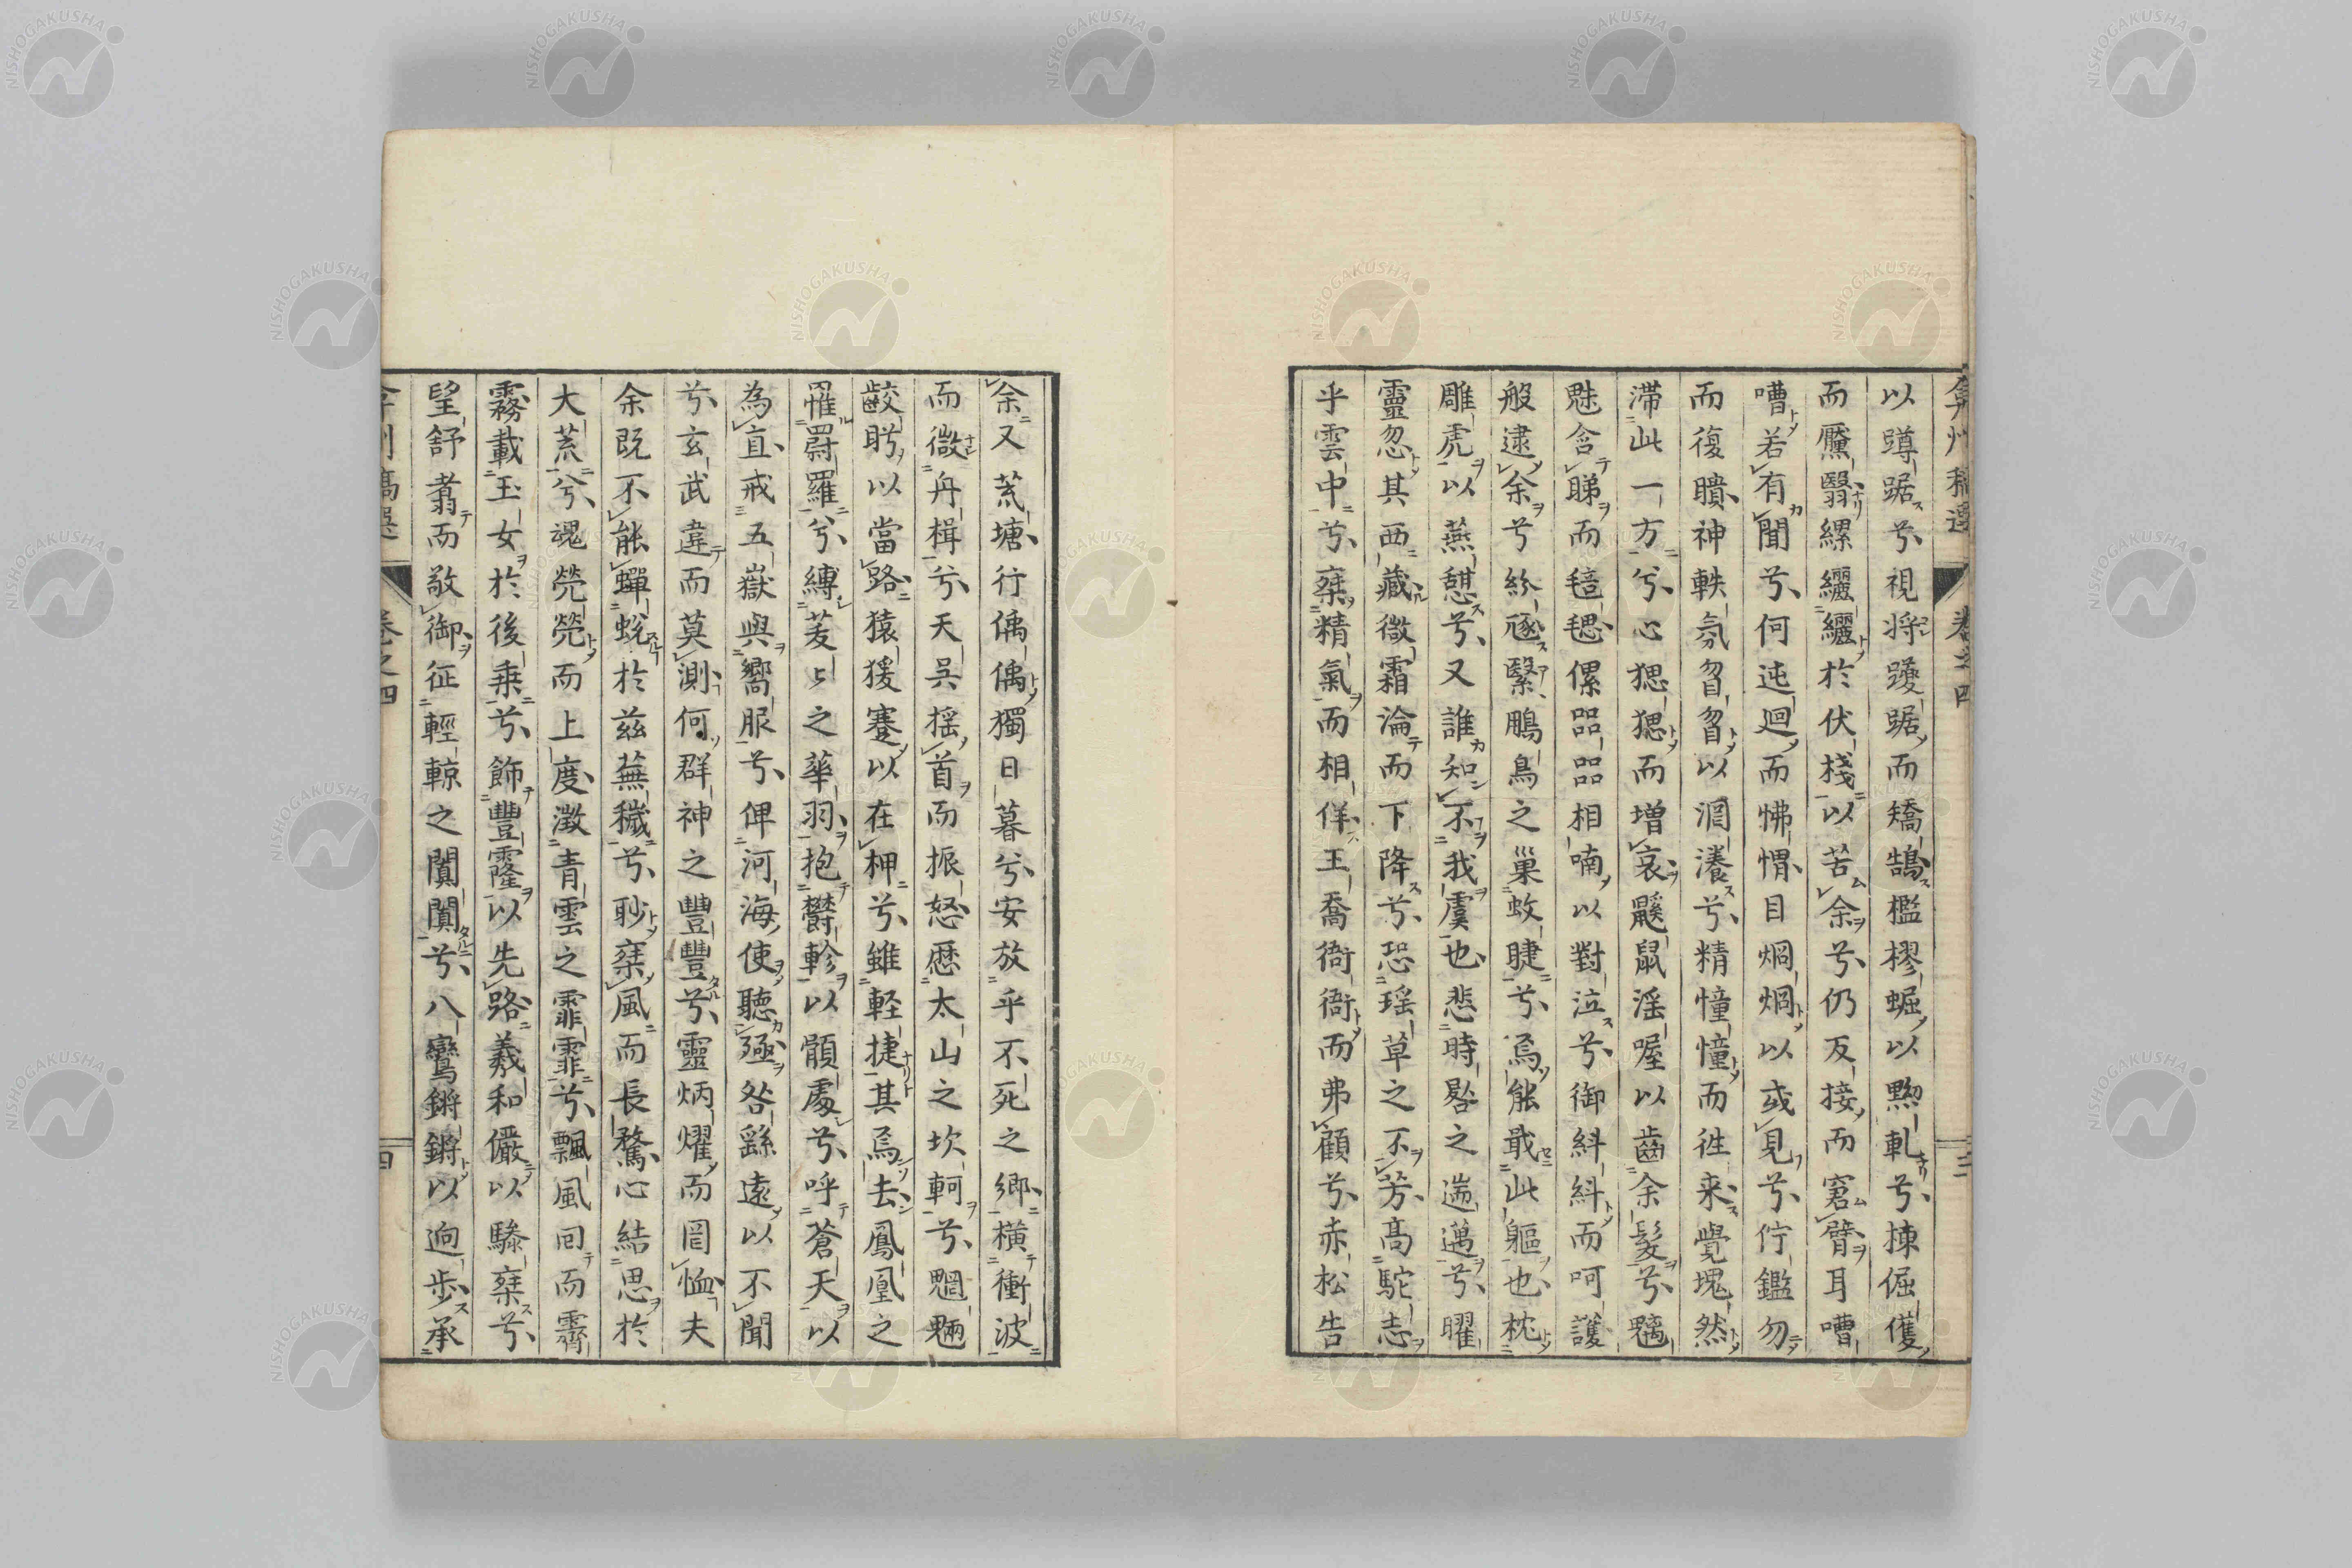 弇州稿選 卷之四 三
以蹲踞兮視將躩踞而矯鵠檻樛蜛以黝軋兮揀倔儮
而黶翳縲纚纚於伏棧以苦余兮仍反接而窘臂耳嘈
嘈若有聞兮何迍迴而怫愲目烱烱以或見兮佇鑑勿
而復瞶神軼氛曶曶以洄瀁兮精憧憧而徃来覺塊然
滯此一方兮心猤猤而增哀鼷鼠淫喔以齒余髮兮魑
魅含睇而䭲毸傫㗊㗊相喃以對泣兮御糾糾而呵護
般逮余兮紛豗緊鵩鳥之巢蚊睫兮焉能戢此軀也枕
雕虎以燕憇兮又誰知不我虞也悲時晷之遄邁兮曜
靈忽其西藏微霜淪而下降兮恐瑶草之不芳高駝志
乎雲中兮棄精氣而相佯王喬衙衙而弗顧兮赤松告
余又荒塘行偊偊獨日暮兮安放乎不死之鄉橫衝波
而微舟楫兮天吳揺首而振怒歷太山之坎軻兮魍魎
齩盻以當路猿猨蹇以在柙兮雖軽捷其焉去鳳凰之
罹罻羅兮縛萎〻之華羽抱欝軫以顝處兮呼蒼天以
為直戒五嶽與嚮服兮俾河海使聽殛咎繇遠以不聞
兮玄武違而莫測何群神之豐豐兮靈炳燿而罔恤夫
余既不能蟬蛻於茲蕪穢兮聊棄風而長騖心結思於
大荒兮魂煢煢而上度澂青雲之霏霏兮飄風回而霽
霧載玉女於後乘兮飾豐霳以先路羲和儼以驂棄兮
望舒翥而敬御征輕輬之闐闐兮八鸞鏘鏘以逈步承
弇州稿選 卷之四 四